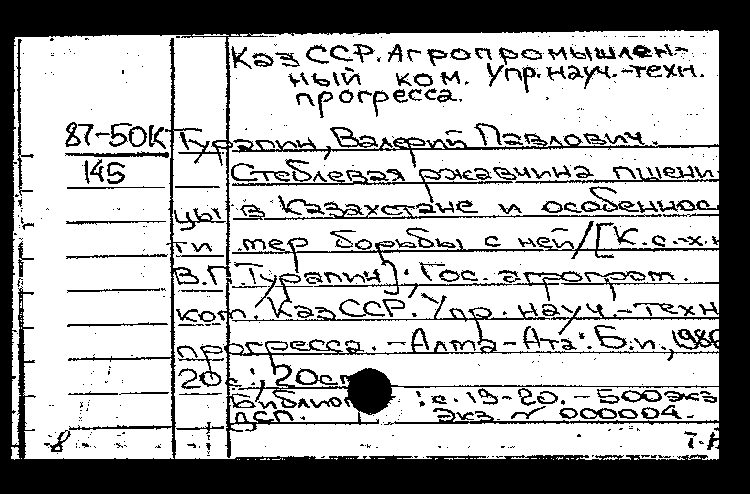 КазССР. Агропромышлен-
ный ком. Упр. науч.-техн.
прогресса.
87-50К Турапин, Валерий Павлович.
145 Стеблевая ржавчина пшени
цы в Казахстане и особеннос
ти мер борьбы с ней/[К.с.-х.н
В.П.Турапин]; Гос. агропром.
ком. КазССР. Упр. науч.-техн
прогресса. - Алма-Ата: Б.и., 1986
20с.; 20см
: с. 19-20. - 500экз
ДСП. Экз. № 000004.
-8